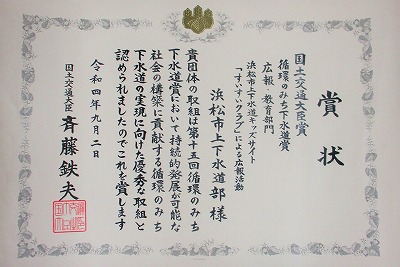 賞状
国土交通大臣賞
循環のみち下水道賞
広報・教育部門
浜松市上下水道キッズサイト
「すいすいクラブ」による広報活動
浜松市上下水道部様
貴団体の取組は第十五回循環のみち
下水道賞において持続的発展が可能な
社会の構築に貢献する循環のみち
下水道の実現に向けた優秀な取組と
認められましたのでこれを賞します
令和四年九月二日
国土交通大臣 斉藤鉄夫